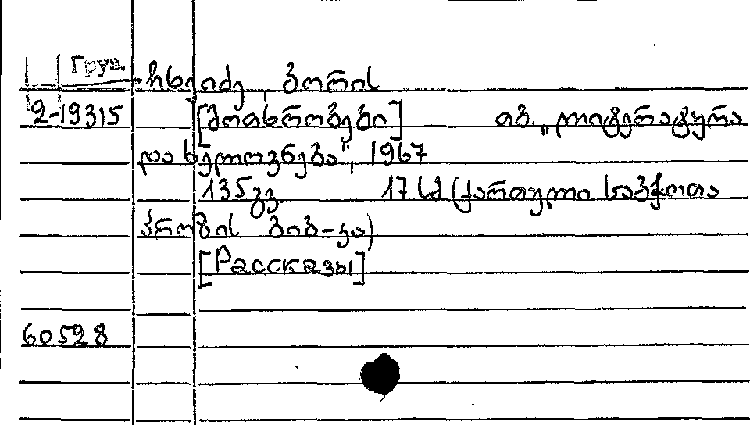 Груз.
ჩხეიძე, ბორის
2-19315 [მოთხრობები] თბ. „ლიტერატურა
და ხელოვნება", 1967
135 გვ. 17 სმ (ქართული საბჭოთა
პროზის ბიბ-კა)
[Рассказы]
60528